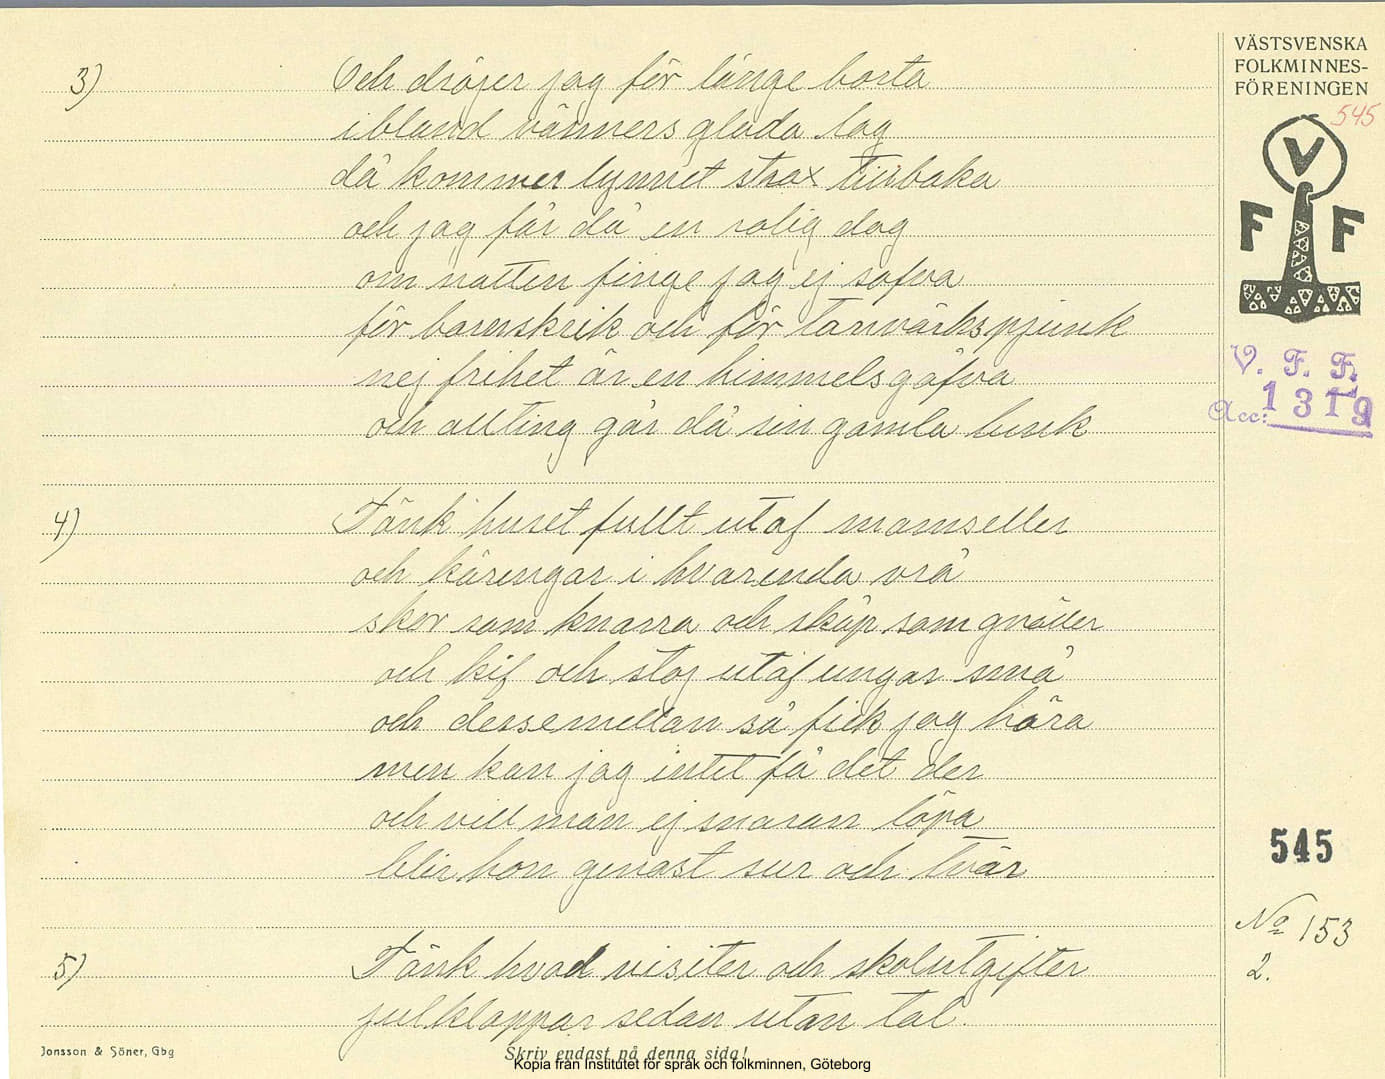 VÄSTSVENSKA
FOLKMINNES-
FÖRENINGEN
545
V
F F
V. F. F.
Acc: 1319
3) Och dröjer jag för länge borta
ibland vänners glada lag
då kommer lynnet strax tillbaka
och jag får då en rolig dag
om natten finge jag ej sofva
för barnskrik och för tanvärks pjunk
nej frihet är en himmelsgåfva
och allting går då sin gamla lunk
4) Tänk huset fullt utaf mamseller
och käringar i hvarenda vrå
skor som knarra och skåp som gnäller
och kif och stoj utaf ungar små
och dessemellan så fick jag höra
men kan jag intet få det der
och vill man ej snaran löpa
blir hon genast sur och tvär
5) Tänk hvad visiter och skolutgifter
julklappar sedan utan tal.
545
No 153
2.
Jonsson & Söner, Gbg
Skriv endast på denna sida!
Kopia från Institutet för språk och folkminnen, Göteborg